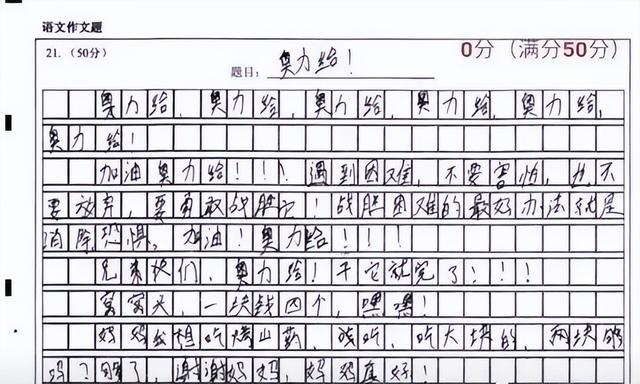 语文作文题
21.（50分）
题目：奥力给！
0分（满分50分）
奥力给，奥力给，奥力给，奥力给，奥力给，
奥力给！
加油奥力给！！！遇到困难，不要害怕，也不
要放弃，要勇敢战胜它！战胜困难的最好办法就是
消除恐惧，加油！奥力给！！！
兄弟们，奥力给！干它就完了！！！
窝窝头，一块钱四个，嘿嘿！
妈妈 想吃烤山药，  吃，吃大块的，两块够
吗？够了，谢谢妈妈，妈妈真好！